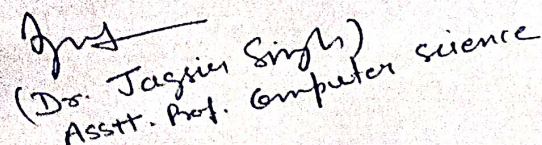 (Dr. Jagsir Singh)
Asstt. Prof. Computer science